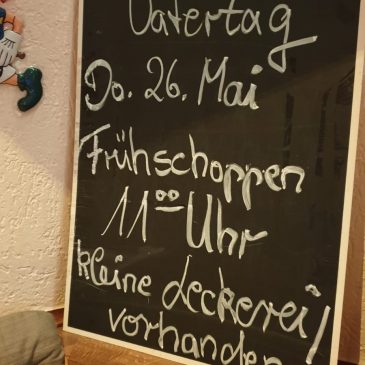 Vatertag
Do. 26. Mai
Frühschoppen
11⁰⁰ Uhr
kleine Leckerei!
vorhanden